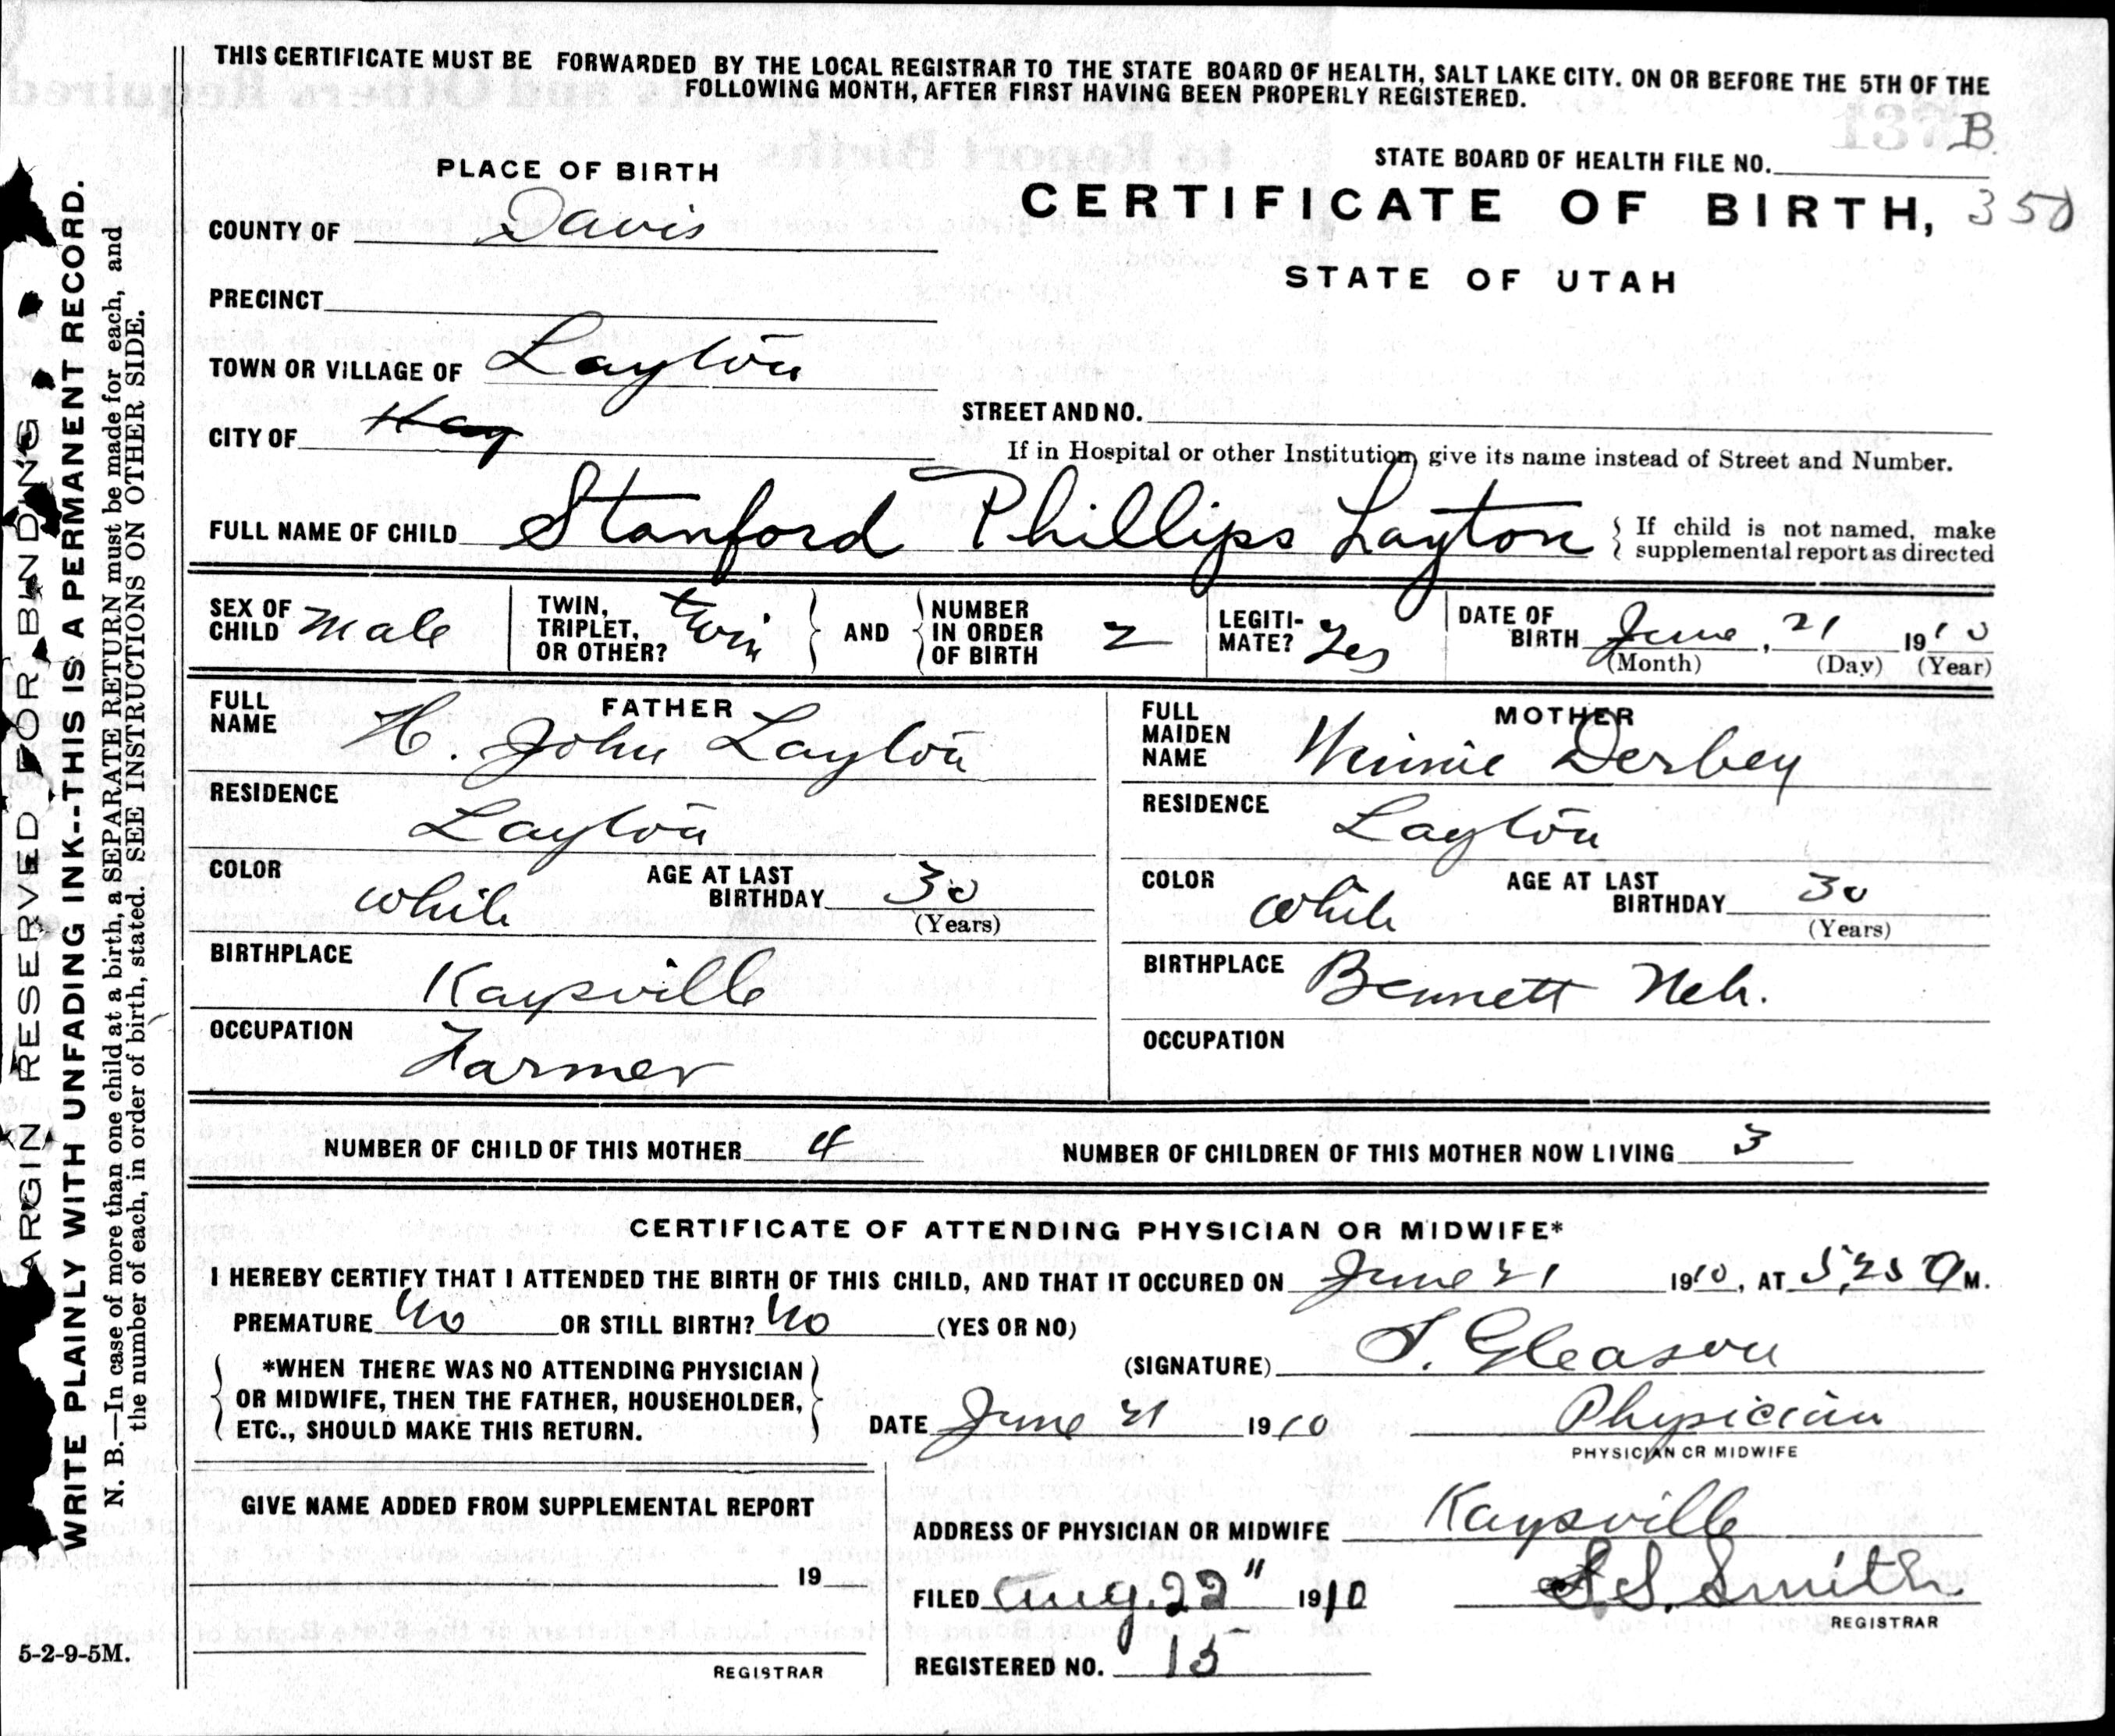 THIS CERTIFICATE MUST BE FORWARDED BY THE LOCAL REGISTRAR TO THE STATE BOARD OF HEALTH, SALT LAKE CITY. ON OR BEFORE THE 5TH OF THE
FOLLOWING MONTH, AFTER FIRST HAVING BEEN PROPERLY REGISTERED.
B
STATE BOARD OF HEALTH FILE NO.
PLACE OF BIRTH
CERTIFICATE OF BIRTH, 350
COUNTY OF Davis
STATE OF UTAH
PRECINCT
TOWN OR VILLAGE OF Layton
CITY OF Kay
STREET AND NO.
If in Hospital or other Institution, give its name instead of Street and Number.
FULL NAME OF CHILD Stanford Phillips Layton
If child is not named, make
supplemental report as directed
SEX OF CHILD male
TWIN, TRIPLET, OR OTHER? twin
AND
NUMBER IN ORDER OF BIRTH 2
LEGITI-MATE? Yes
DATE OF BIRTH June, 21 1910
(Month) (Day) (Year)
FATHER
FULL NAME H. John Layton
RESIDENCE
Layton
COLOR white AGE AT LAST BIRTHDAY 30
(Years)
BIRTHPLACE
Kaysville
OCCUPATION
Farmer
MOTHER
FULL MAIDEN NAME Winnie Derbey
RESIDENCE
Layton
COLOR white AGE AT LAST BIRTHDAY 30
(Years)
BIRTHPLACE Bennett Neb.
OCCUPATION
NUMBER OF CHILD OF THIS MOTHER 4 NUMBER OF CHILDREN OF THIS MOTHER NOW LIVING 3
CERTIFICATE OF ATTENDING PHYSICIAN OR MIDWIFE*
I HEREBY CERTIFY THAT I ATTENDED THE BIRTH OF THIS CHILD, AND THAT IT OCCURED ON June 21 1910, AT 5,25 M.
PREMATURE No OR STILL BIRTH? No (YES OR NO)
*WHEN THERE WAS NO ATTENDING PHYSICIAN
OR MIDWIFE, THEN THE FATHER, HOUSEHOLDER,
ETC., SHOULD MAKE THIS RETURN.
(SIGNATURE) S. Gleason
DATE June 21 1910
Physician
PHYSICIAN OR MIDWIFE
GIVE NAME ADDED FROM SUPPLEMENTAL REPORT
19
REGISTRAR
ADDRESS OF PHYSICIAN OR MIDWIFE Kaysville
FILED Aug. 22" 1910
S. Smith
REGISTRAR
REGISTERED NO. 15
5-2-9-5M.
MARGIN RESERVED FOR BINDING
WRITE PLAINLY WITH UNFADING INK--THIS IS A PERMANENT RECORD.
N. B.—In case of more than one child at a birth, a SEPARATE RETURN must be made for each, and
the number of each, in order of birth, stated. SEE INSTRUCTIONS ON OTHER SIDE.